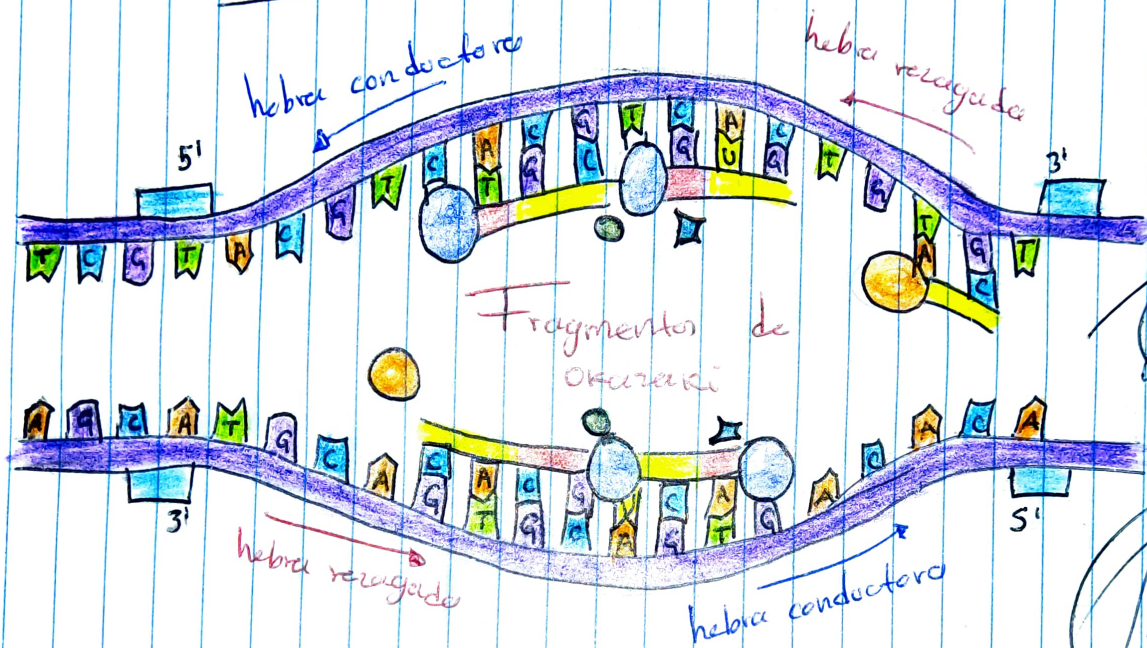 hebra conductora
hebra rezagada
5'
3'
T C G T A C G T C A C G T C A C T G T G T
T G C G U G A C
Fragmentos de
okazaki
C A C G C A
A G C A T G C A G T G C A G T G A C A C A
3'
5'
hebra rezagada
hebra conductora